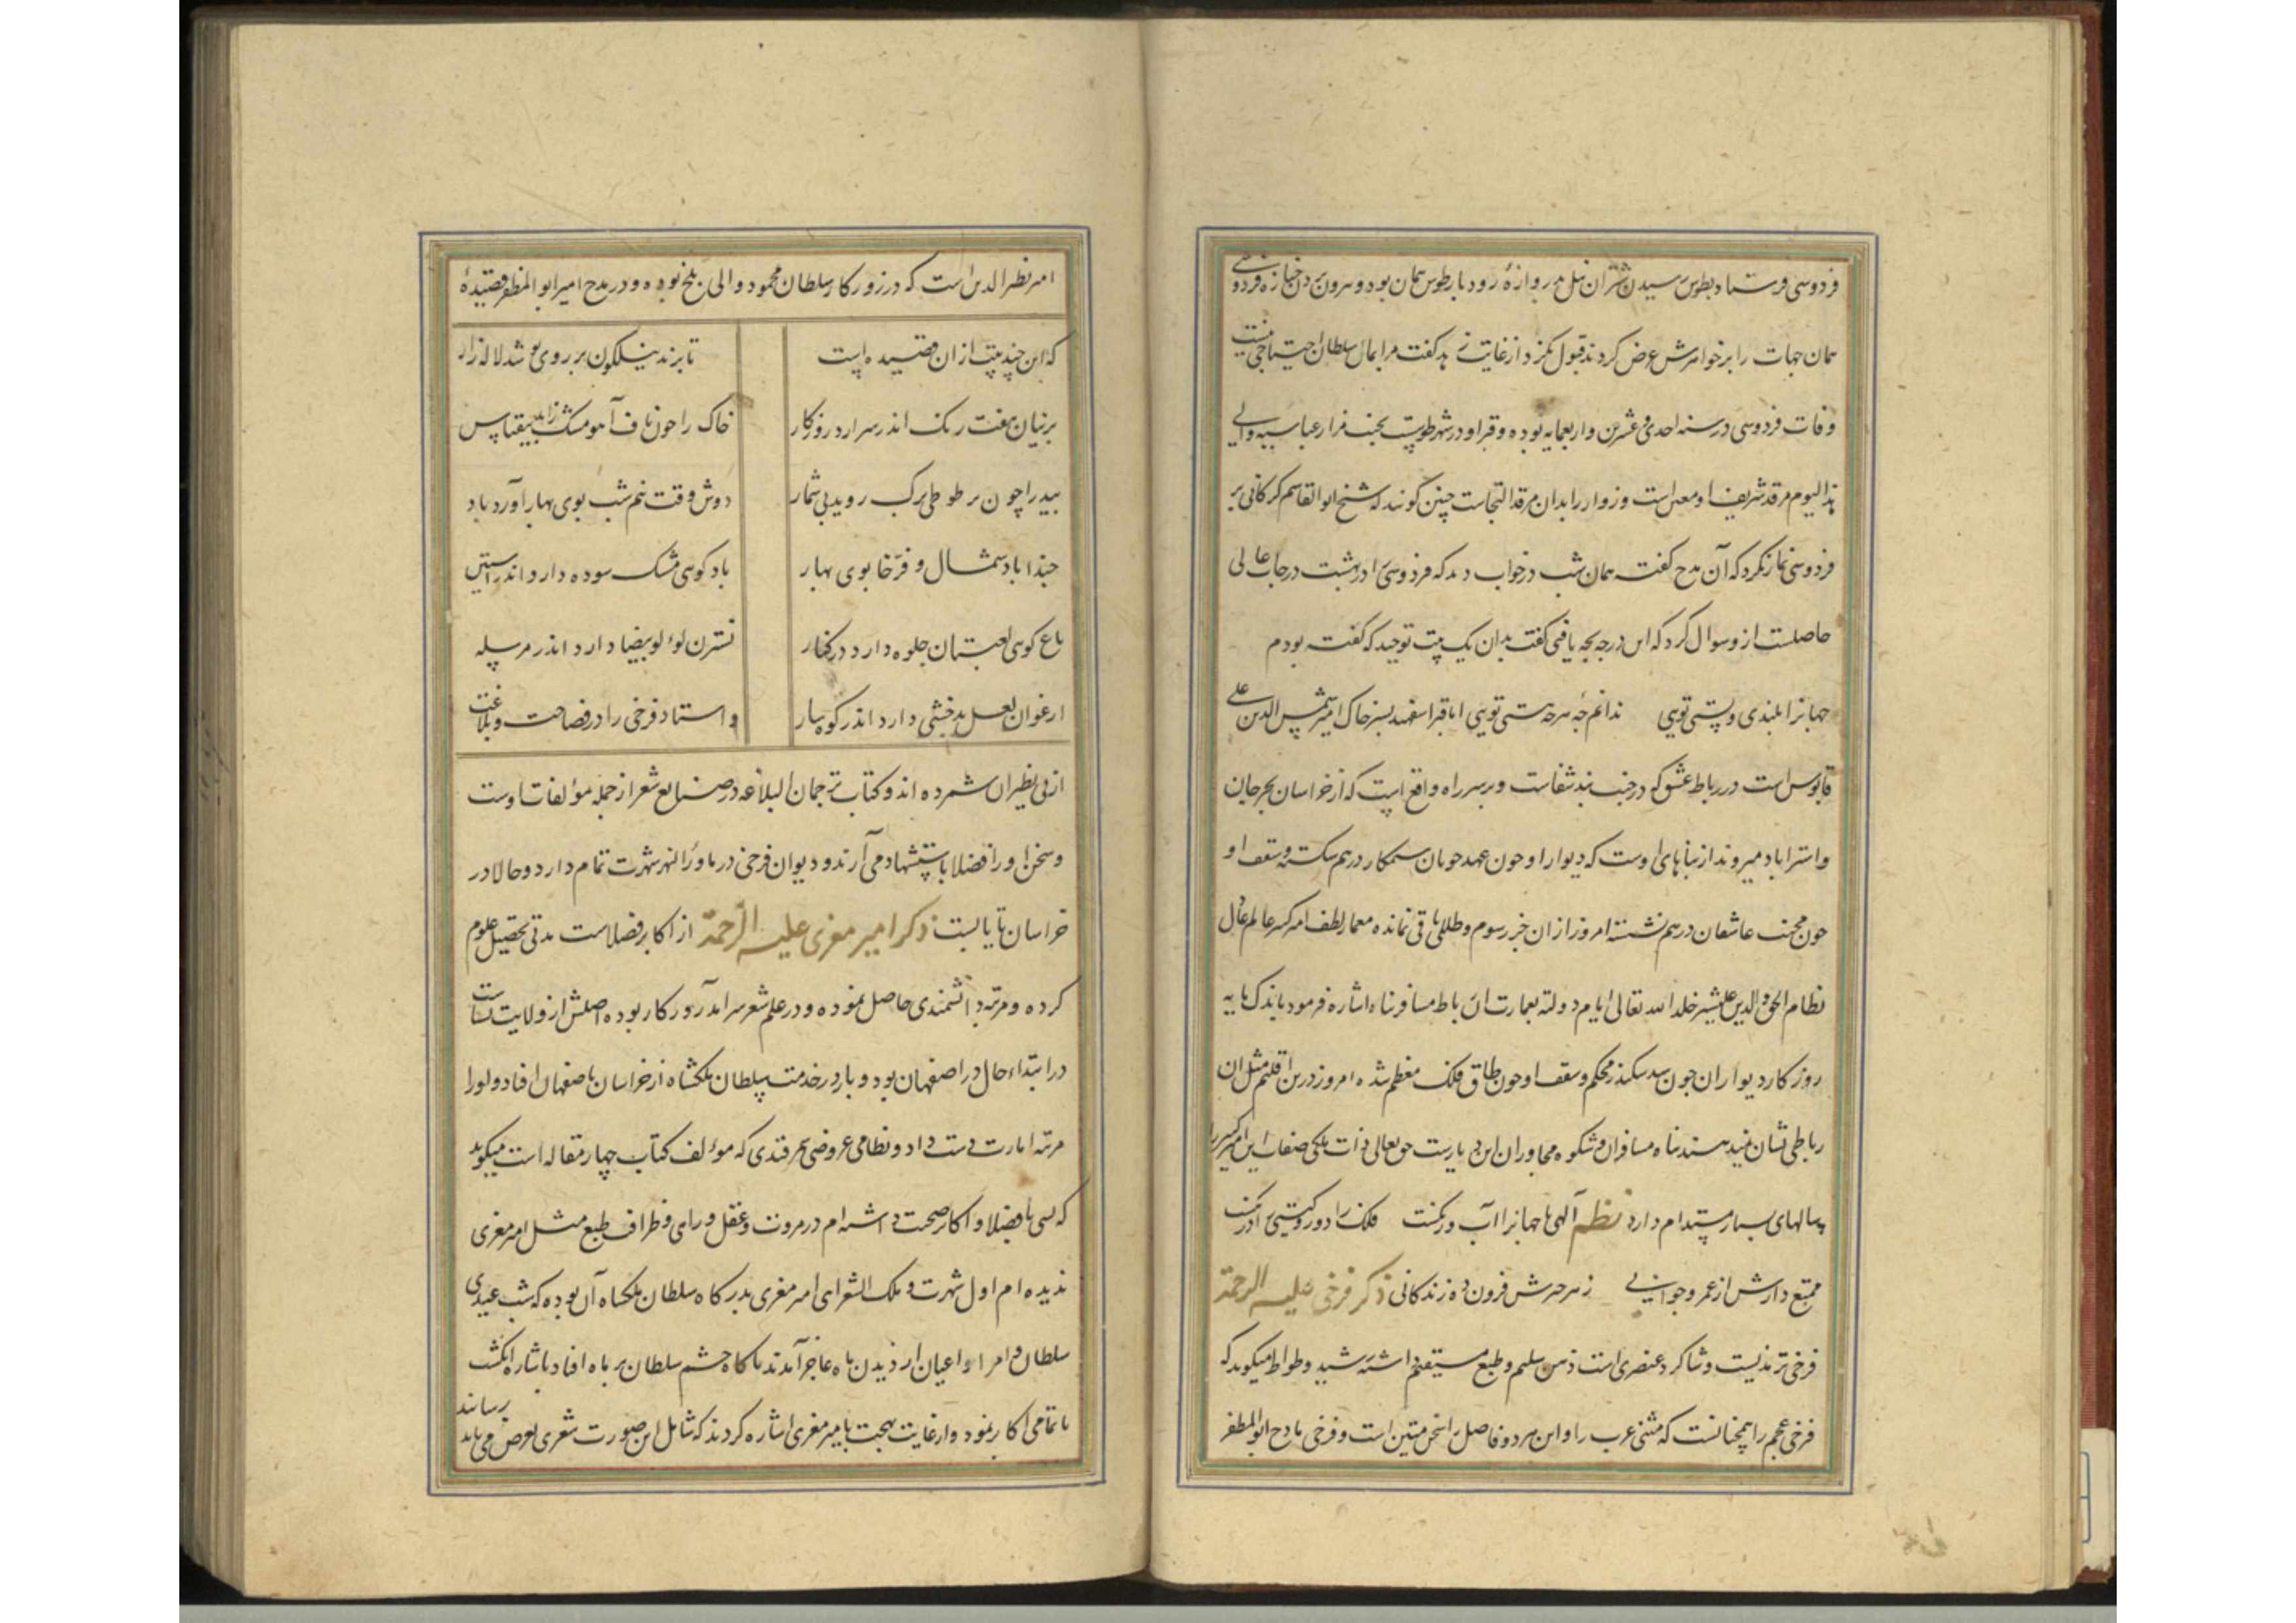 فردوسی فرستاد بطوس رسیدن شتران نیل بدروازهٔ رودبار طوس همان بود و بیرون بردن جنازه فردوسی
همان جهات را برخواهرش عرض کردند قبول نکرد از غایت زهد گفت مرا بمال سلطان احتیاجی نیست
وفات فردوسی در سنه احدی عشرین و اربعمایه بوده و قبر او در شهر طوس است بجنب مزار عباسیه والی
هذا الیوم مرقد شریف او معین است و زوار را بدان مرقد التجاست چنین گویند که شیخ ابوالقاسم کرکانی بر
فردوسی نماز نکرد که آن مدح گفت همان شب در خواب دید که فردوسی را در بهشت درجات عالی
حاصلست از وسوال کرد که این درجه بچه یافتی گفت بدان یک بیت توحید که گفته بودم
جهانرا بلندی و پستی تویی ندانم چه هر چه هستی تویی اما قبر اسفهید بسر خاک امیر شمس الدین علی
قابوس است در رباط عشق که در جنب بند شقاست و بر سر راه واقع است که از خراسان بجرجان
و استراباد میروند از بناهای اوست که دیوار او چون عهد خوبان ستمکار در هم شکسته و سقف او
چون محنت عاشقان در هم نشسته امروز از ان جز رسوم و طللی باقی نمانده معمار لطف امیر کبیر عالم عادل
نظام الحق و الدین علیشیر خلد الله تعالی ایام دولته بعمارت ان رباط مسافر پناه اشاره فرمود باندک مایه
روزکار دیوار ان چون سد سکندر محکم و سقف او چون طاق فلک معظم شده امروز درین اقلیم مثل ان
رباطی نشان نمیدهند پناه مسافران و شکوه مجاوران این دیارست حق تعالی ذات ملکی صفات این امیر کبیر را
سالهای بسیار مستدام دارد نظم الهی تا جهانرا آب و رنکست فلک را دور و کیتی را درنکست
ممتع دارش از عمر و جوانی ز هر چیزش فزون ده زندکانی ذکر فرخی علیه الرحمة
فرخی ترمذیست و شاکرد عنصری است ذهن سلیم و طبع مستقیم داشته رشید وطواط میکوید که
فرخی عجم را همچنانست که متنبی عرب را و این هر دو فاضل را سخن متین است و فرخی مادح ابو المظفر
امیر نصر الدین است که در روزکار سلطان محمود والی بلخ بوده و در مدح امیر ابو المظفر قصیدهٔ
که این چند بیت از ان قصیده است تا پرند نیلکون بر روی پو شد لاله زار
پرنیان هفت رنک اندر سر ارد روزکار خاک را چون ناف آهو مشک زاید بیقیاس
بید را چون پر طوطی برک روید بی شمار دوش وقت نیم شب بوی بهار آورد باد
حبذا باد شمال و فرّخا بوی بهار باد کوی مشک سوده دارد اندر استین
باغ کوی لعبتان جلوه دارد در کنار نسترن لوٴ لو بیضا دارد اندر مرسله
ارغوان لعل بدخشی دارد اندر کوسار و استاد فرخی را در فصاحت و بلاغت
از بی نظیران شمرده اند و کتاب ترجمان البلاغه در صنایع شعر از جمله موٴلفات اوست
و سخن او را فضلا باستشهاد می آرند و دیوان فرخی در ماورا النهر شهرت تمام دارد و حالا در
خراسان نایابست ذکر امیر معزی علیه الرحمة از اکابر فضلاست مدتی تحصیل علوم
کرده و مرتبه دانشمندی حاصل نموده و در علم شعر سر آمد روزکار بوده اصلش از ولایت نسا است
در ابتداء حال در اصفهان بود و بار در خدمت سلطان ملکشاه از خراسان باصفهان افتاد و او را
مرتبه امارت دست داد و نظامی عروضی سمرقندی که موٴلف کتاب چهار مقاله است میکوید
که بسی با فضلا و اکابر صحبت داشته ام در مروت و عقل و رای و ظرافت طبع مثل امیر معزی
ندیده ام اول شهرت و ملک الشعرای امیر معزی بدرکاه سلطان ملکشاه آن بوده که شب عیدی
سلطان و امرا و اعیان از دیدن ماه عاجز آمدند ناکاه چشم سلطان بر ماه افتاد باشاره انکشت
با تمامی اکابر نمود و از غایت بهجت بامیر معزی اشاره کردند که شامل این صورت شعری بعرض می باید رسانند